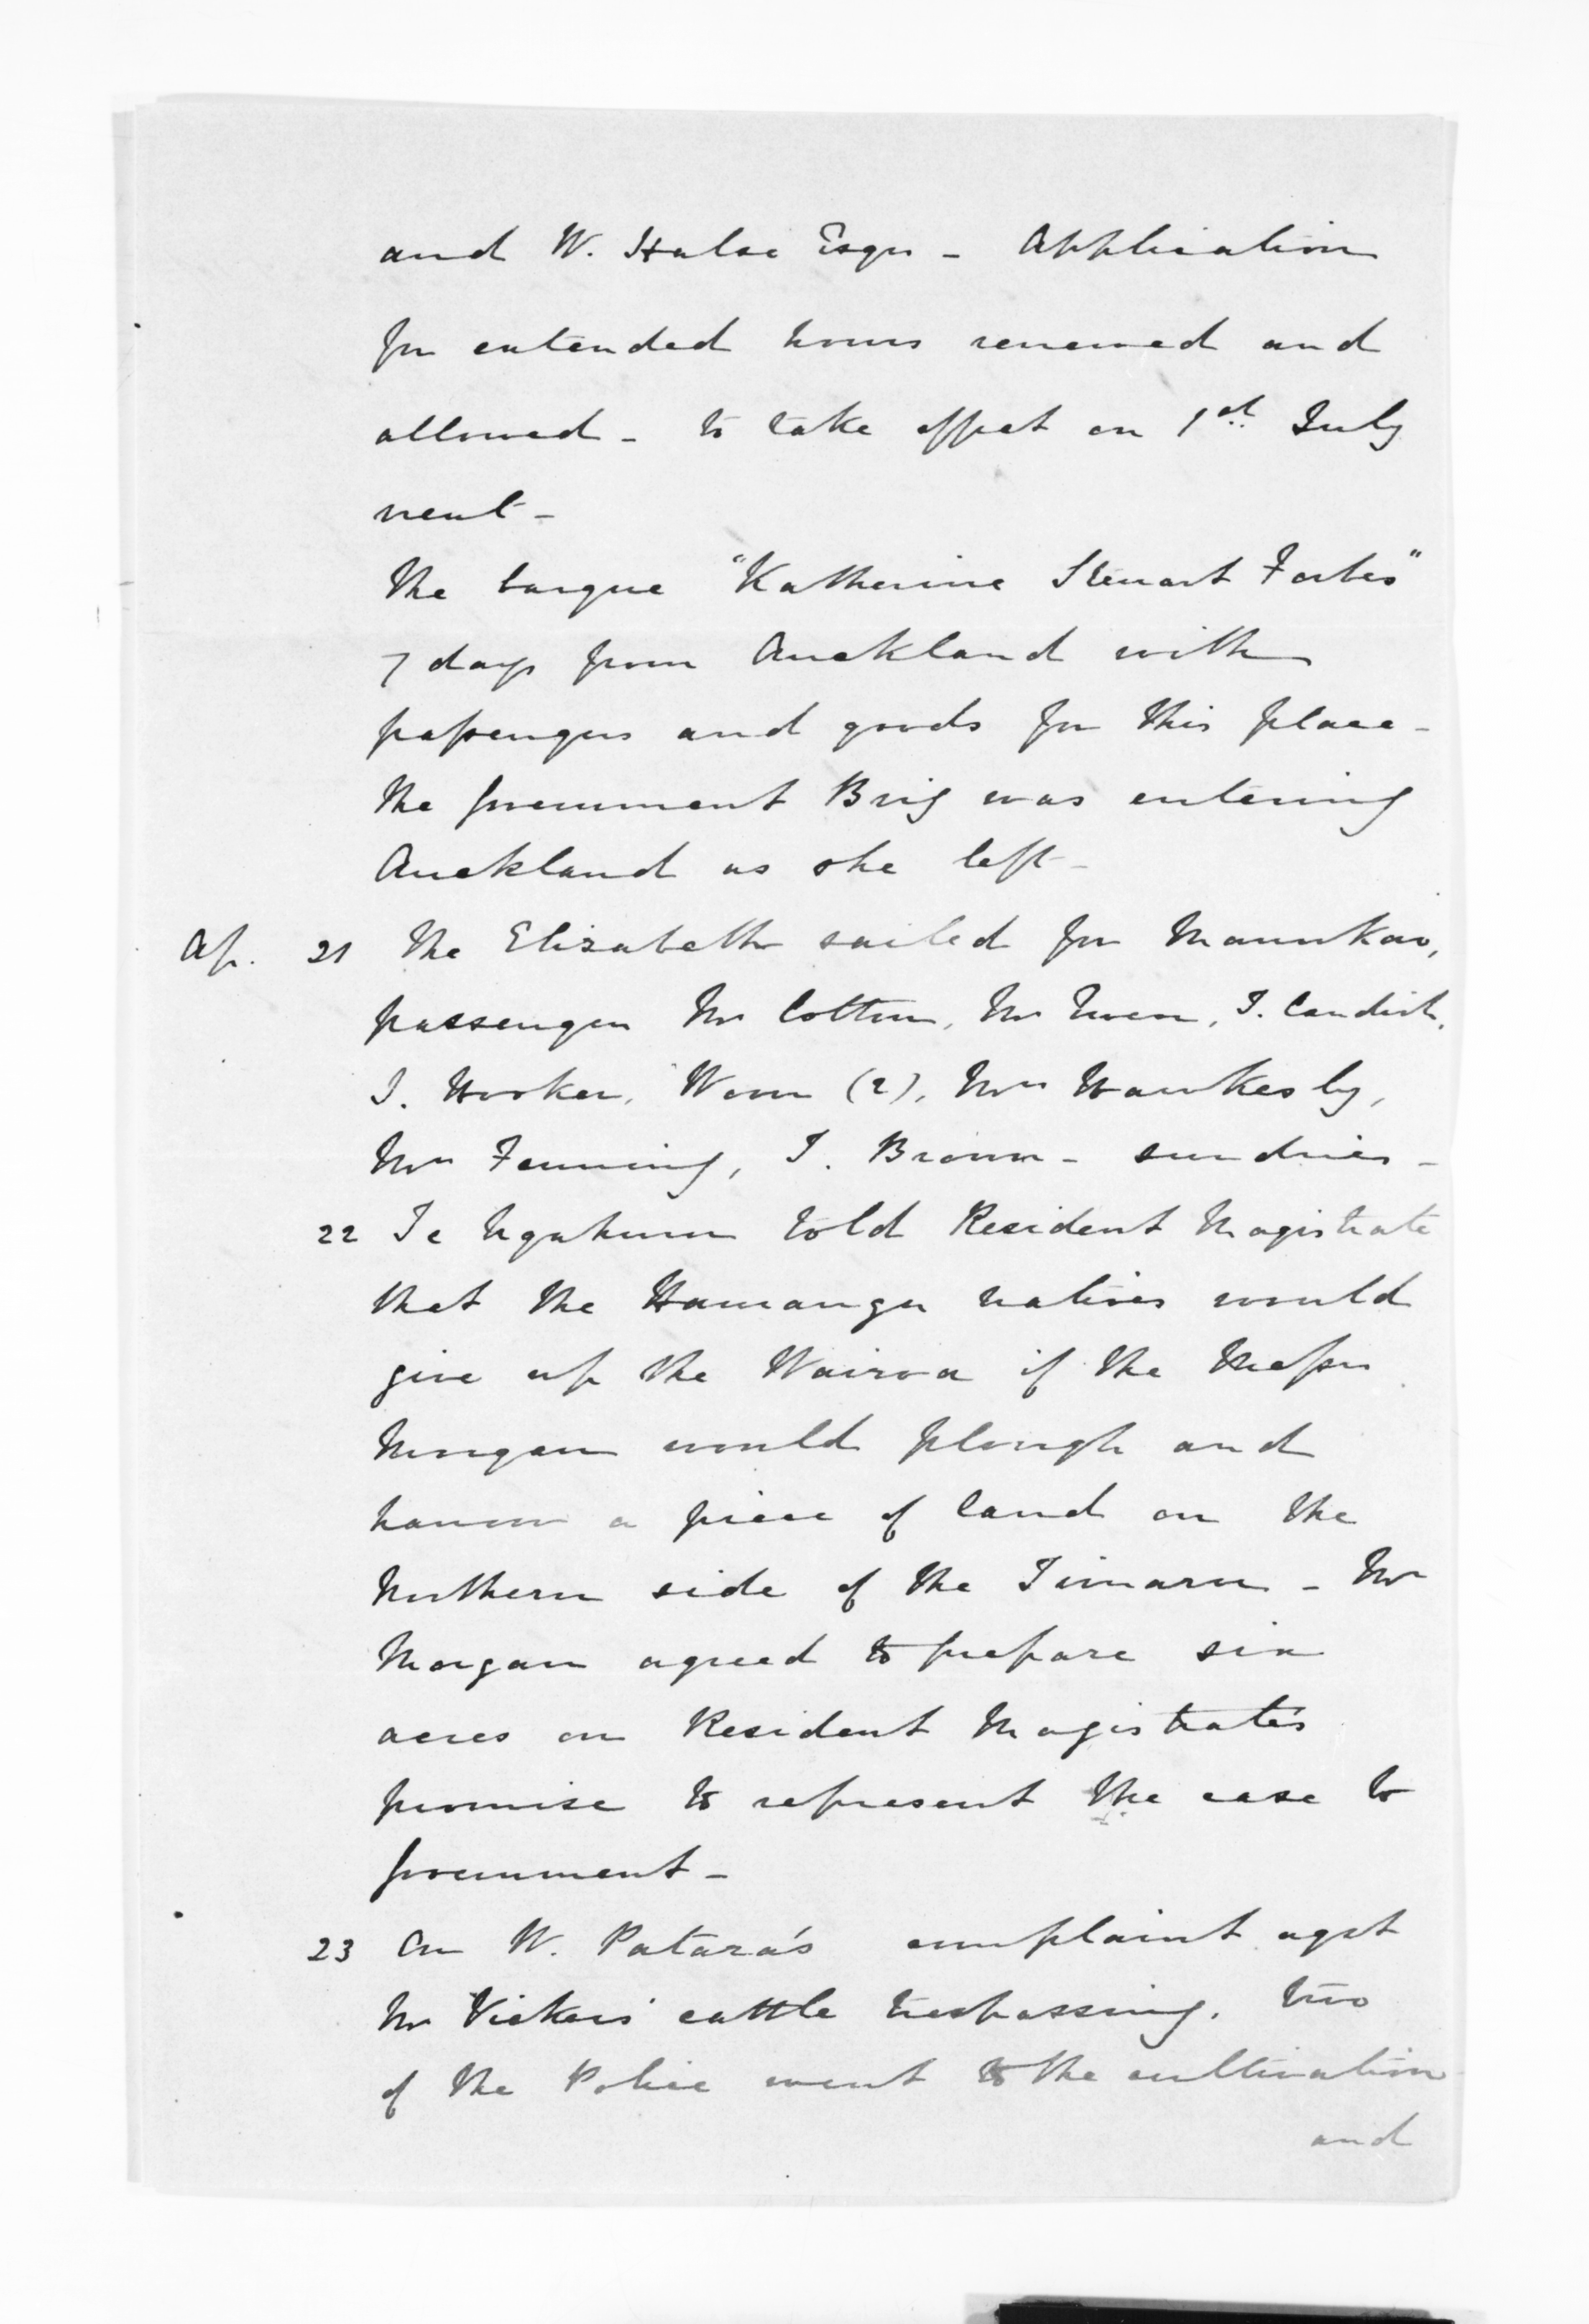 and W. Halse Esqrs - Application
for extended hours renewed and
allowed - to take effect on 1st July
next -
The barque "Katherine Stewart Forbes"
7 days from Auckland with
passengers and goods for this place -
The Government Brig was entering
Auckland as she left -
Ap. 21 The Elizabeth sailed for Manukao,
passengers Mr Cotton, Mr Turen, J. Candish,
J. Hooker, Worn (2), Mrs Hawkesby,
Mrs Fenning, J. Brown - sundries -
22 Te Ngahuru told Resident Magistrate
that the Hauranga natives would
give up the Wairoa if the Messrs
Morgan would plough and
harrow a piece of land on the
Northern side of the Timaru - Mr
Morgan agreed to prepare six
acres on Resident Magistrate's
promise to represent the case to
Government -
23 On W. Patara's complaint agst
Mr Vickers' cattle trespassing, two
of the Police went to the cultivation
and